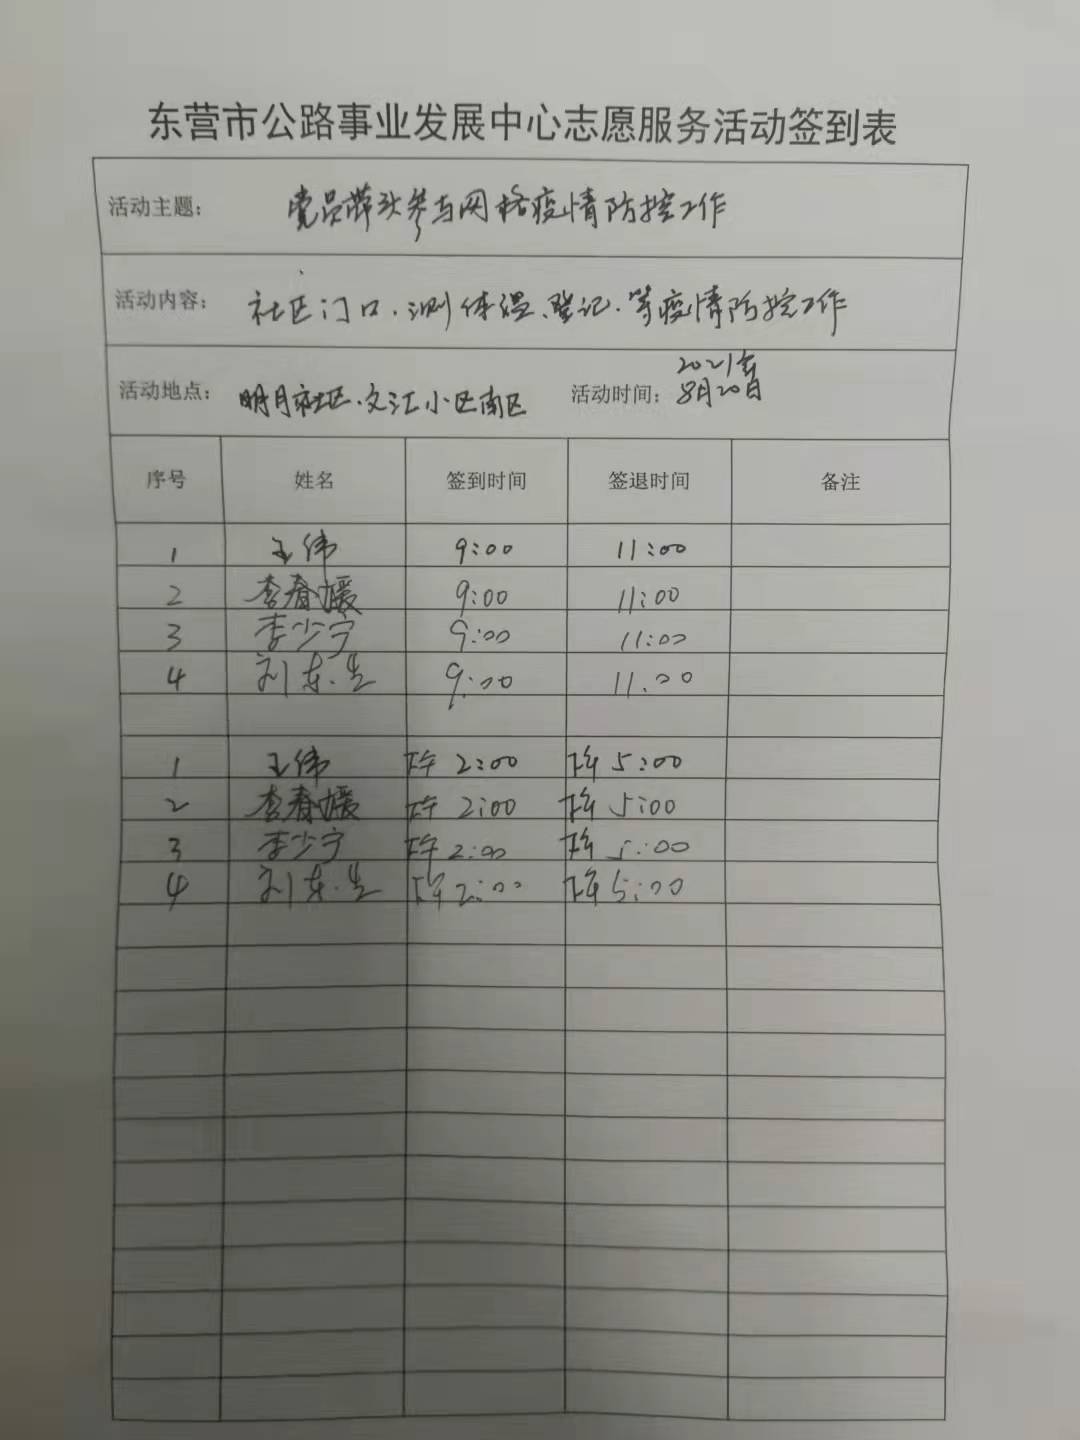 东营市公路事业发展中心志愿服务活动签到表
活动主题： 党员带头参与网格疫情防控工作
活动内容： 社区门口、测体温、登记、等疫情防控工作
活动地点： 明月社区、文汇小区南区 活动时间： 2021年
8月20日
序号 姓名 签到时间 签退时间 备注
1 王伟 9:00 11:00
2 李春媛 9:00 11:00
3 李少宁 9:00 11:00
4 刘东生 9:00 11.00
1 王伟 下午 2:00 下午 5:00
2 李春媛 下午 2:00 下午 5:00
3 李少宁 下午 2:00 下午 5:00
4 刘东生 下午 2:00 下午 5:00